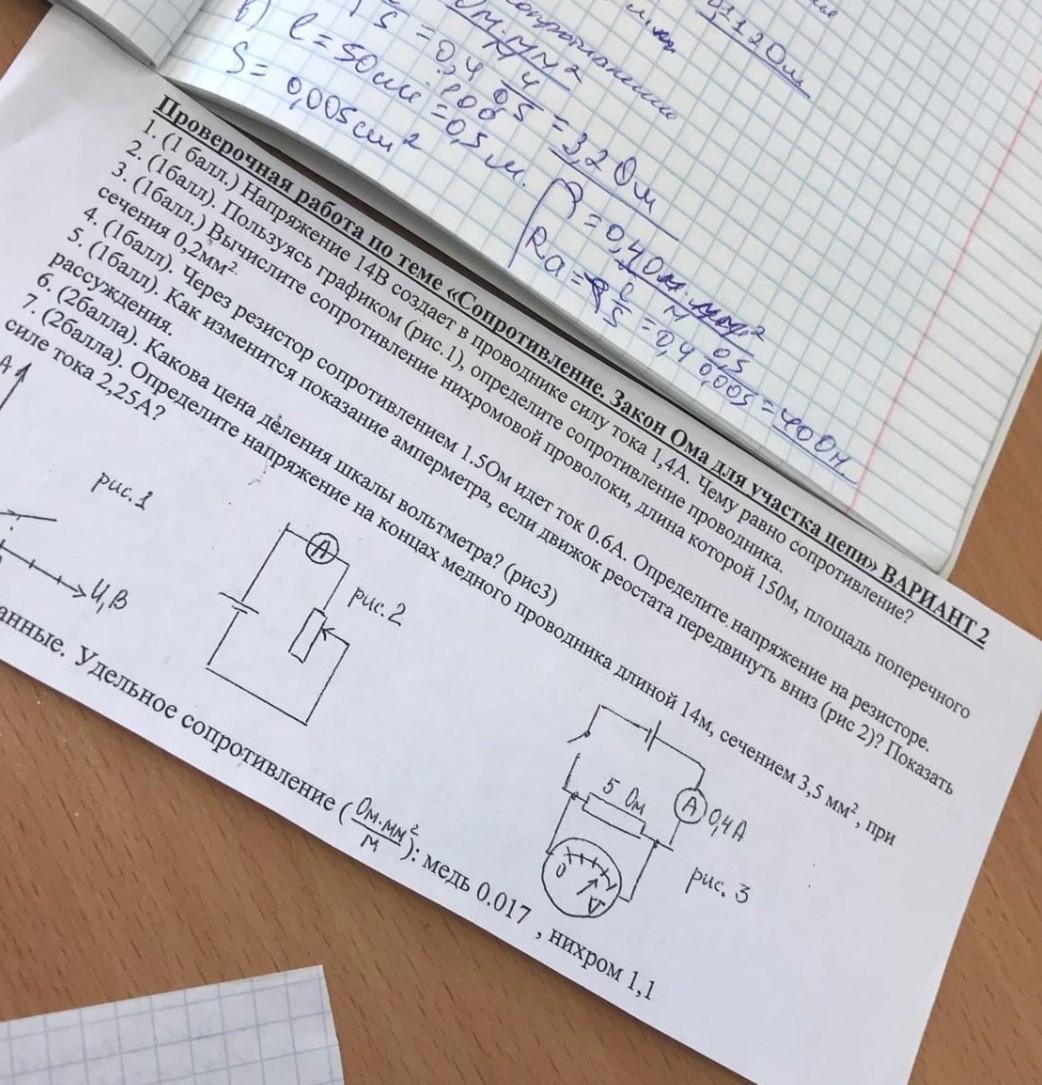 м.
112 Ом
Ом·мм²
S = 0,4 4/0,5 = 3,2 Ом
б) l = 50см : 100 = 0,5 м.
S = 0,005 см²
= 0,4 Ом·мм²/м
R = l/S = 0,4 0,5/0,005 = 40 Ом
Проверочная работа по теме «Сопротивление. Закон Ома для участка цепи» ВАРИАНТ 2
1. (1 балл.) Напряжение 14В создает в проводнике силу тока 1,4А. Чему равно сопротивление?
2. (1балл). Пользуясь графиком (рис.1), определите сопротивление проводника.
3. (1балл.) Вычислите сопротивление нихромовой проволоки, длина которой 150м, площадь поперечного
сечения 0,2мм².
4. (1балл). Через резистор сопротивлением 1.5Ом идет ток 0.6А. Определите напряжение на резисторе.
5. (1балл). Как изменится показание амперметра, если движок реостата передвинуть вниз (рис 2)? Показать
рассуждения.
6. (2балла). Какова цена деления шкалы вольтметра? (рис3)
7. (2балла). Определите напряжение на концах медного проводника длиной 14м, сечением 3,5 мм², при
силе тока 2,25А?
А
рис.1
U,В
А
рис.2
5 Ом
А
0,4А
0
V
рис. 3
анные. Удельное сопротивление (Ом·мм²/м): медь 0.017 , нихром 1,1